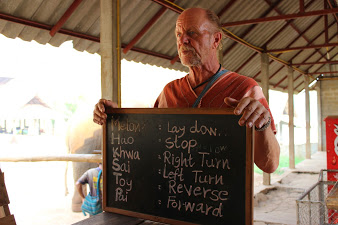 Melon : Lay down...
Hao : stop...
Khwa : Right Turn
Sai : Left Turn
Toy : Reverse
Pai : Forward